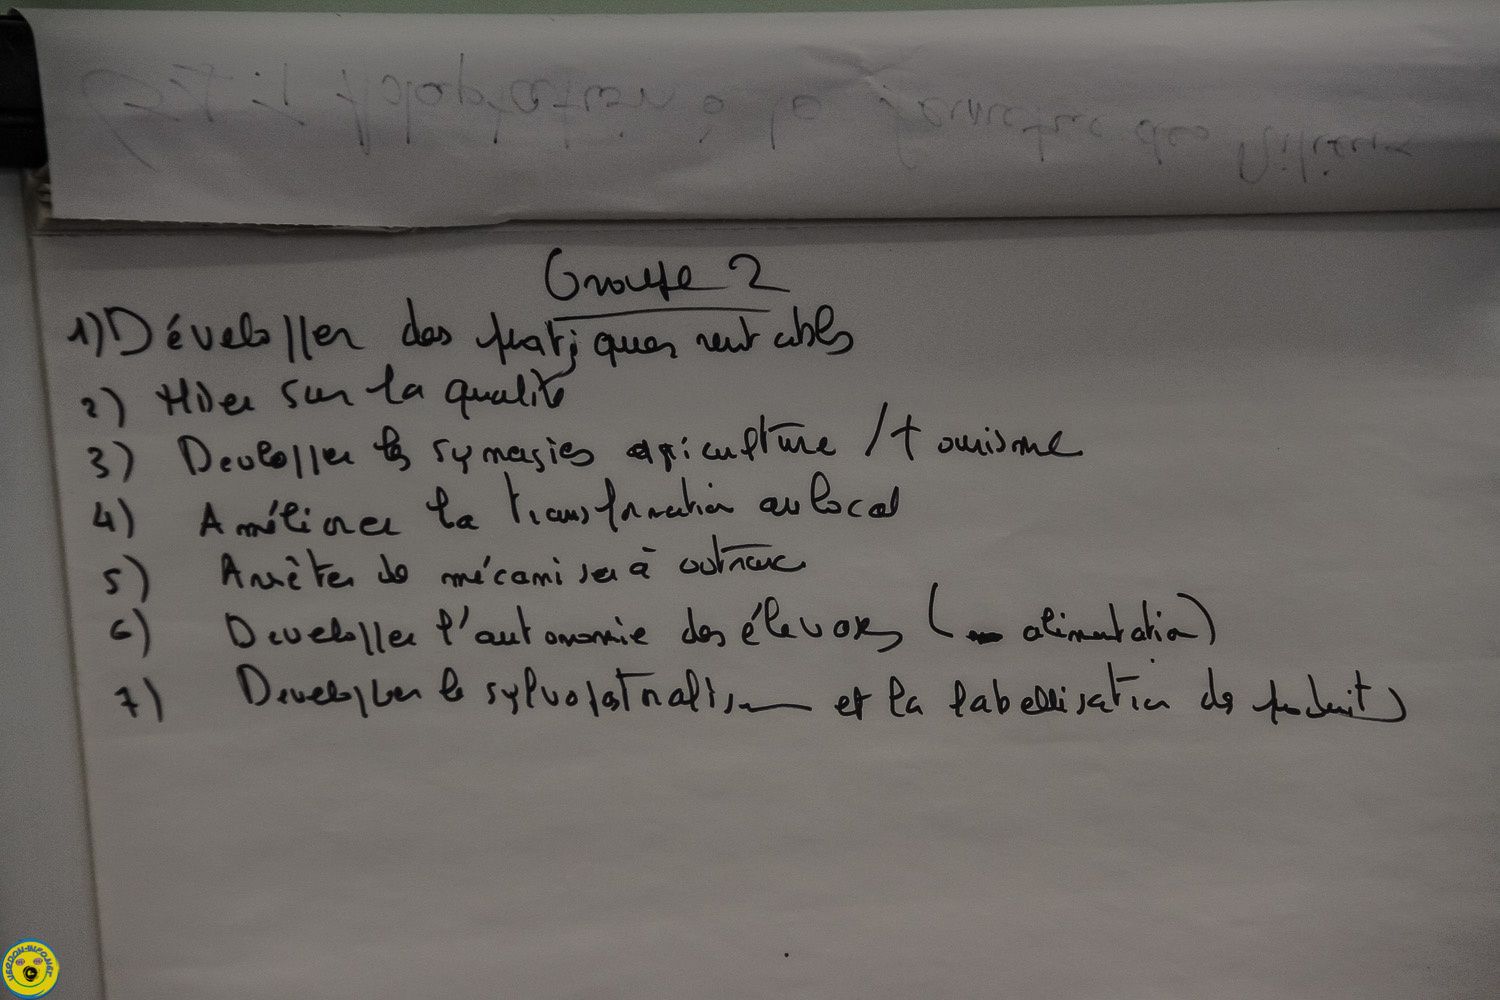 Groupe 2
1) Développer des pratiques rentables
2) Miser sur la qualité
3) Developper les synergies agriculture / tourisme
4) Améliorer la transformation au local
5) Arrêter de mécaniser à outrance
6) Developper l'autonomie des éleveurs ( alimentation)
7) Developper le sylvopastoralisme et la labellisation des produits
VERDON-INFO.NET